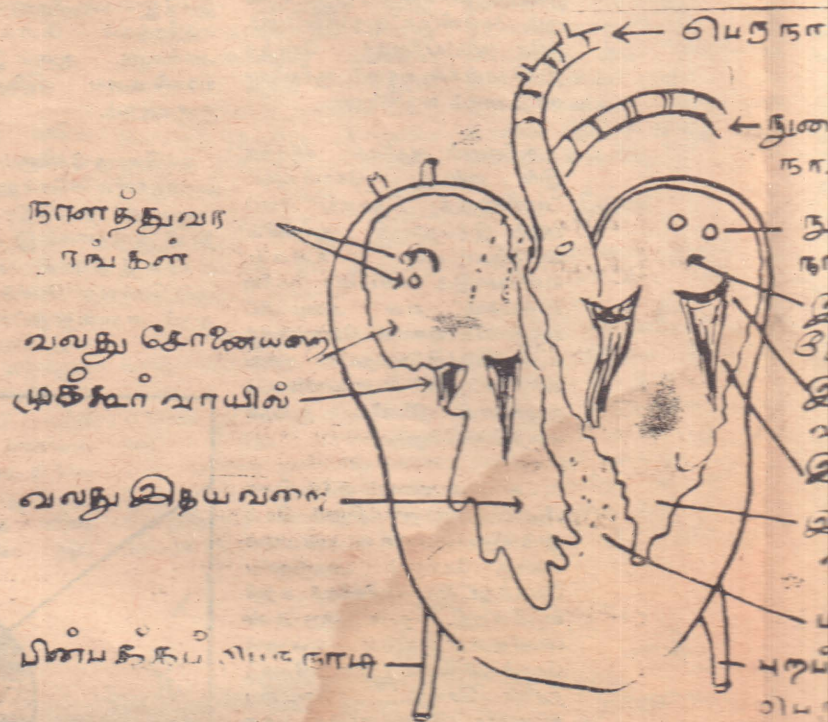 பெறநா
நுண
நா
நாளத்துவா
ரங்கள்
நு
நா
வலது சோணையறை
முக்கூர் வாயில்
வலது இதய வறை
பின்பக்கப் பெருநாடி
புறப்
பெ